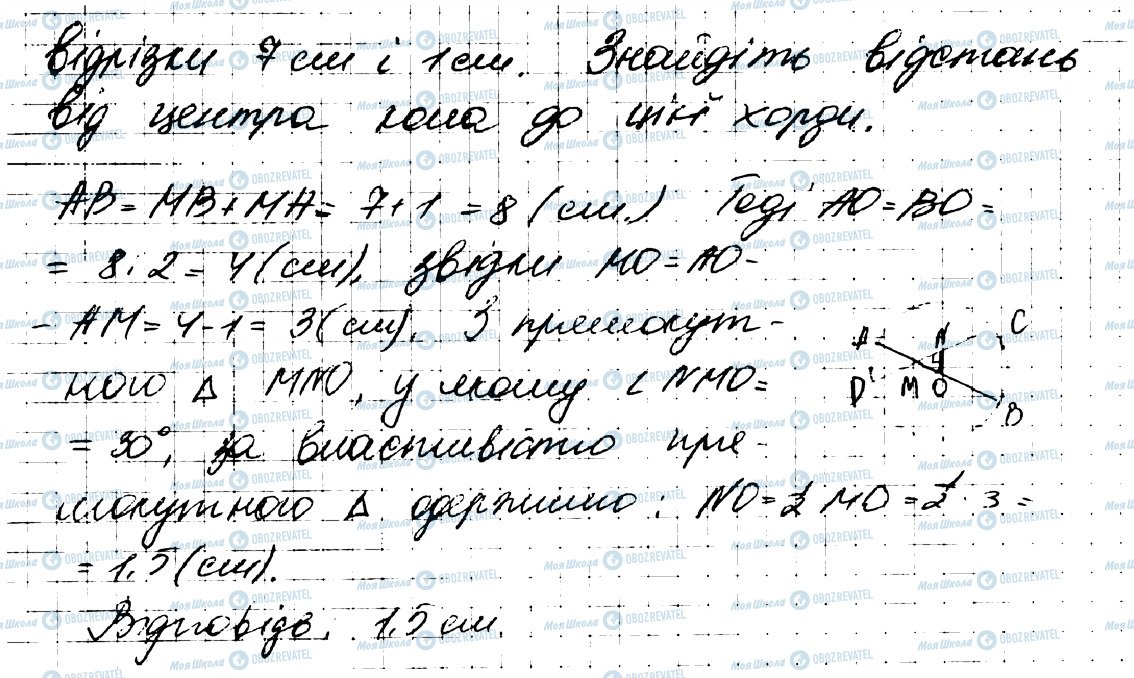 відрізки 7 см і 1 см. Знайдіть відстань
від центра кола до цієї хорди.
AB = MB + MA = 7 + 1 = 8 (см). Тоді AO = BO =
= 8 : 2 = 4 (см), звідки MO = AO -
- AM = 4 - 1 = 3 (см). З прямокут-
ного Δ MNO, у якому ∠ NMO =
= 30°, за властивістю пря-
мокутного Δ одержимо: NO = 1/2 MO = 1/2 · 3 =
= 1,5 (см).
Відповідь. 1,5 см.
A N C
D M O
B
Моя Школа OBOZREVATEL